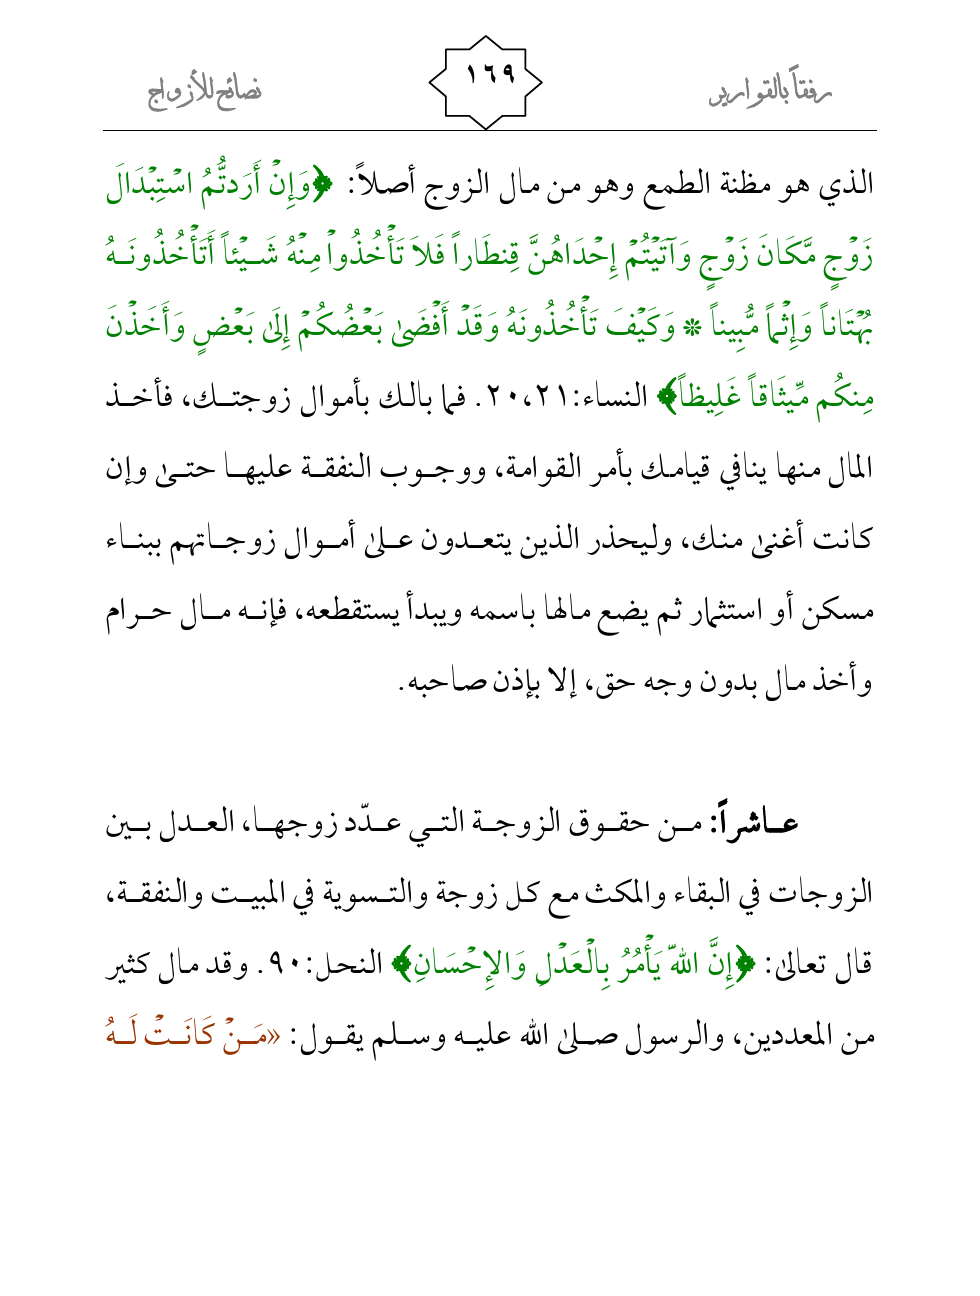 رفقاً بالقوارير
١٦٩
نصائح للأزواج
الذي هو مظنة الطمع وهو من مال الزوج أصلاً: ﴿وَإِنْ أَرَدتُّمُ اسْتِبْدَالَ
زَوْجٍ مَّكَانَ زَوْجٍ وَآتَيْتُمْ إِحْدَاهُنَّ قِنطَاراً فَلاَ تَأْخُذُواْ مِنْهُ شَيْئاً أَتَأْخُذُونَهُ
بُهْتَاناً وَإِثْماً مُّبِيناً * وَكَيْفَ تَأْخُذُونَهُ وَقَدْ أَفْضَى بَعْضُكُمْ إِلَى بَعْضٍ وَأَخَذْنَ
مِنكُم مِّيثَاقاً غَلِيظاً﴾ النساء:٢٠،٢١. فما بالك بأموال زوجتك، فأخذ
المال منها ينافي قيامك بأمر القوامة، ووجوب النفقة عليها حتى وإن
كانت أغنى منك، وليحذر الذين يتعدون على أموال زوجاتهم ببناء
مسكن أو استثمار ثم يضع مالها باسمه ويبدأ يستقطعه، فإنه مال حرام
وأخذ مال بدون وجه حق، إلا بإذن صاحبه.
عاشراً: من حقوق الزوجة التي عدّد زوجها، العدل بين
الزوجات في البقاء والمكث مع كل زوجة والتسوية في المبيت والنفقة،
قال تعالى: ﴿إِنَّ اللّهَ يَأْمُرُ بِالْعَدْلِ وَالإِحْسَانِ﴾ النحل:٩٠. وقد مال كثير
من المعددين، والرسول صلى الله عليه وسلم يقول: «مَنْ كَانَتْ لَهُ